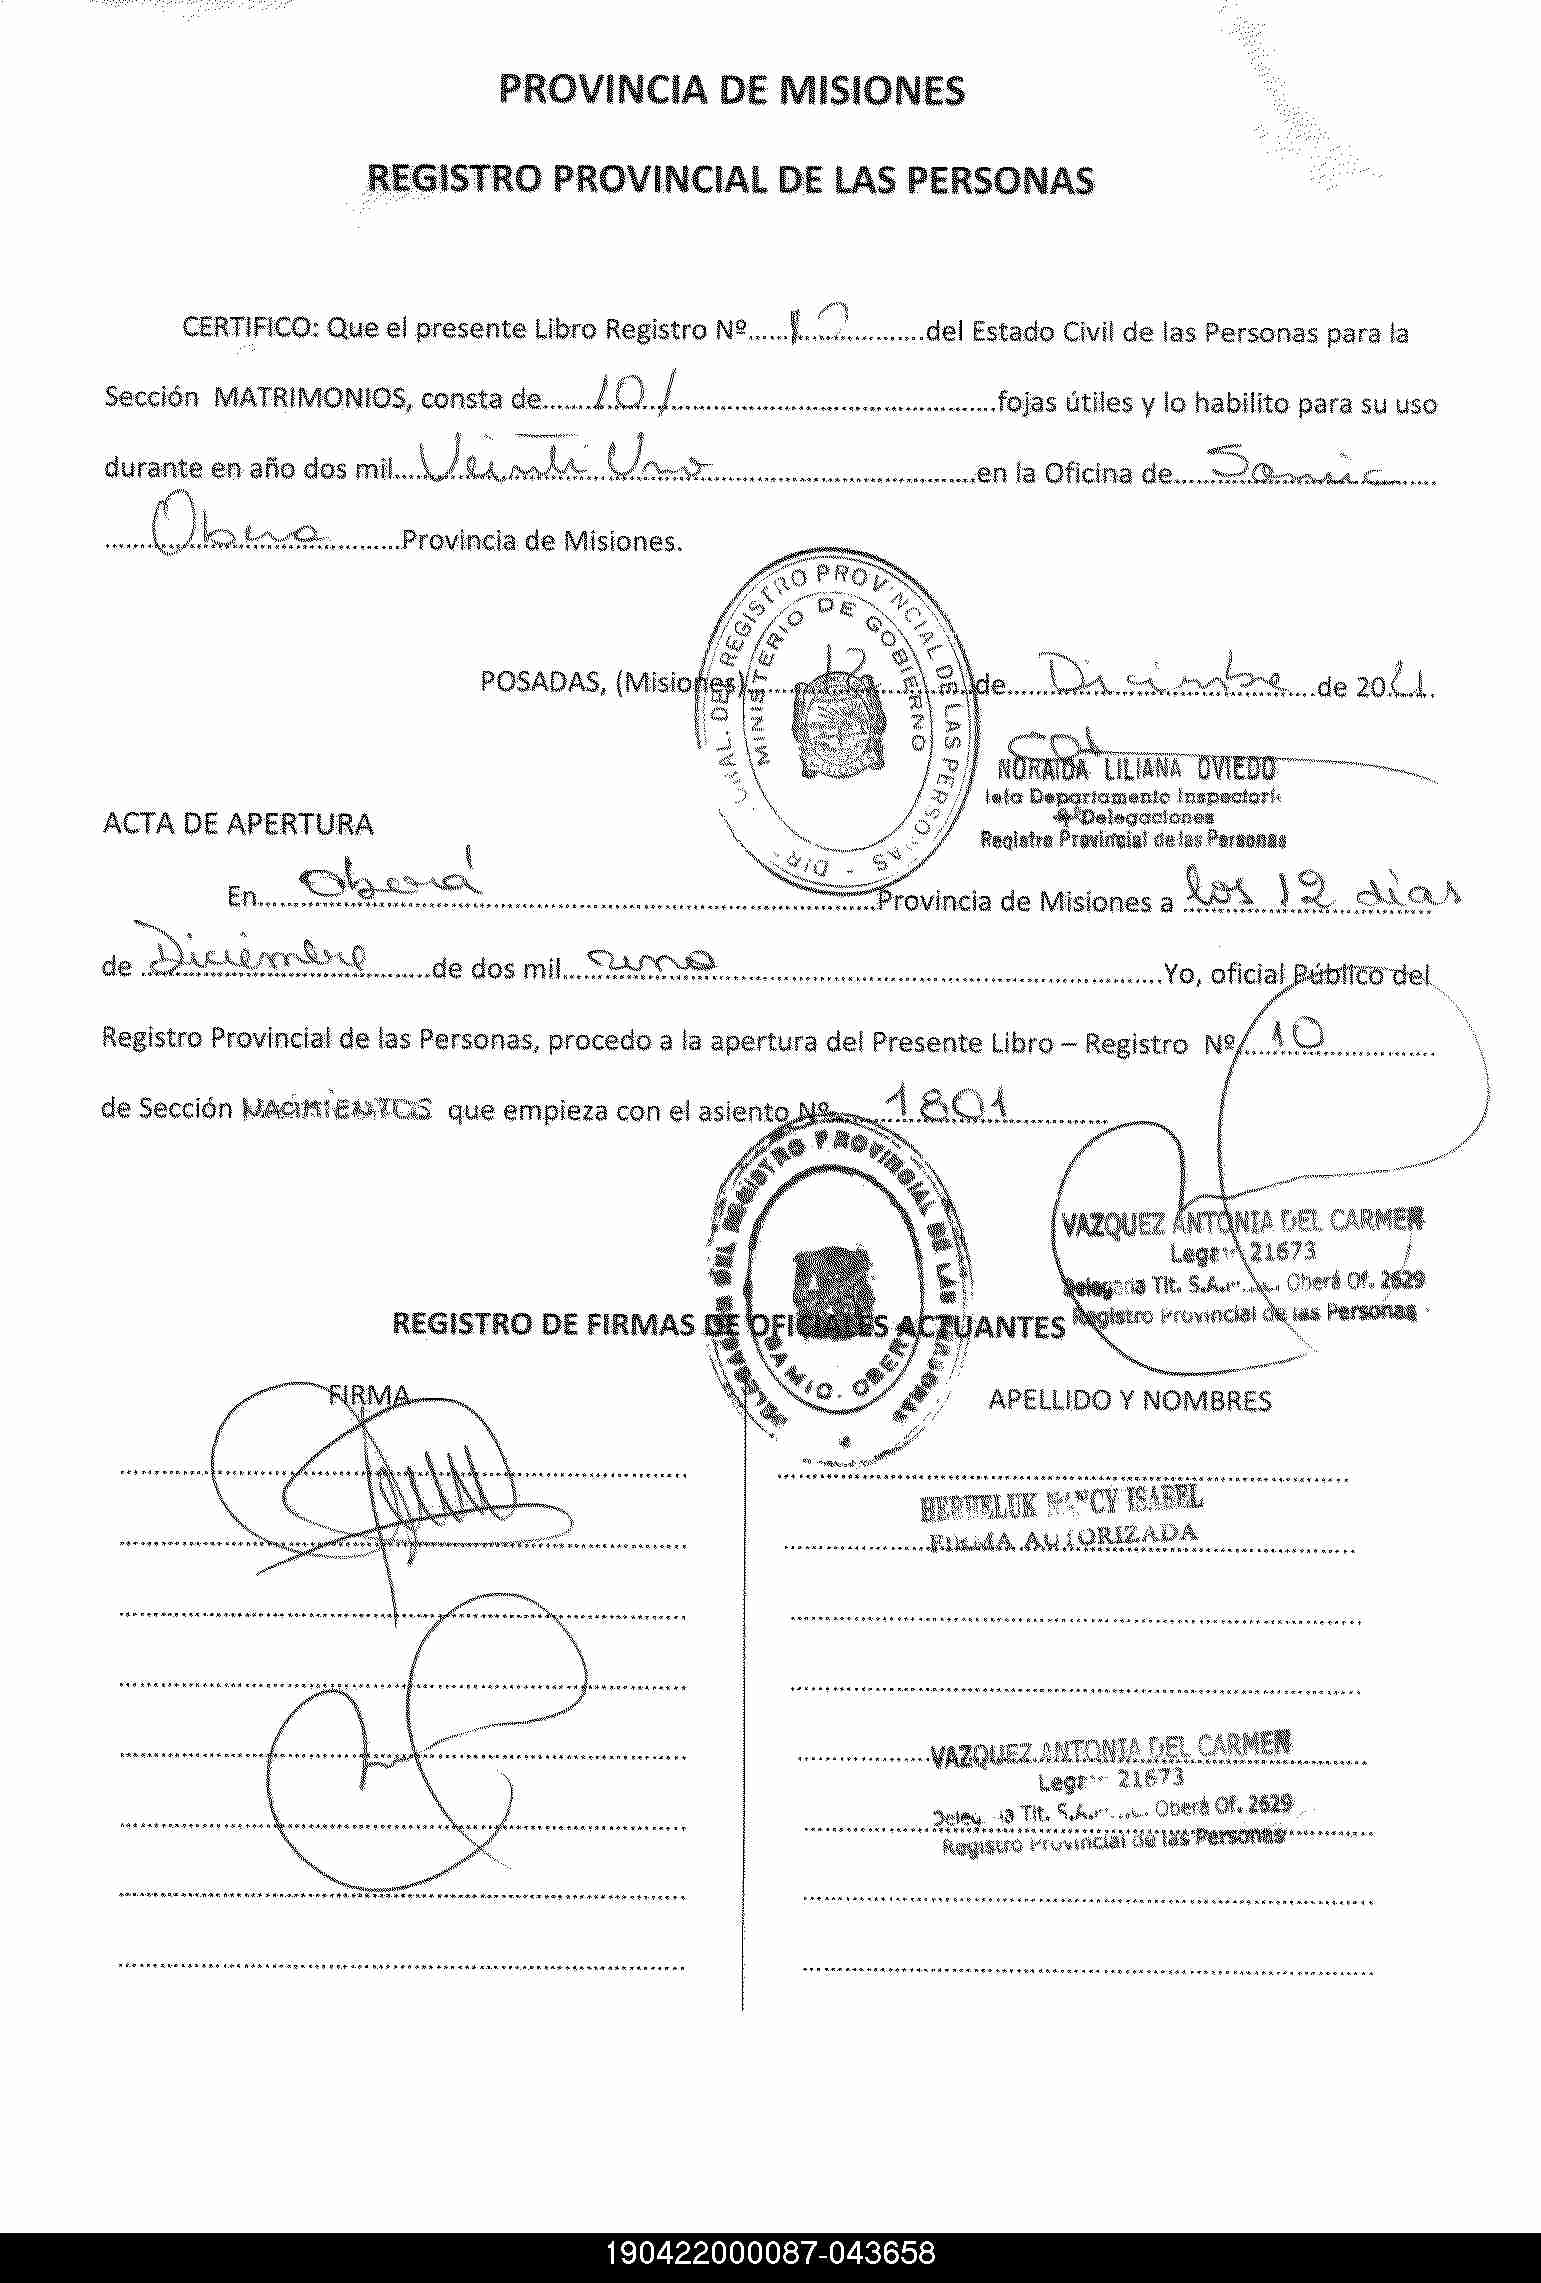 PROVINCIA DE MISIONES
REGISTRO PROVINCIAL DE LAS PERSONAS
CERTIFICO: Que el presente Libro Registro Nº...... ..............del Estado Civil de las Personas para la
Sección MATRIMONIOS, consta de......101......fojas útiles y lo habilito para su uso
durante en año dos mil....Veinti Uno......en la Oficina de......Samic......
......Obera......Provincia de Misiones.
POSADAS, (Misiones)......12......de......Diciembre......de 2021.
NORAIDA LILIANA OVIEDO
Jefa Departamento Inspectoría
Delegaciones
Registro Provincial de las Personas
ACTA DE APERTURA
En......Oberá......Provincia de Misiones a los 12 días
de Diciembre......de dos mil....uno......Yo, oficial Público del
Registro Provincial de las Personas, procedo a la apertura del Presente Libro – Registro Nº...10......
de Sección NACIMIENTOS que empieza con el asiento Nº......1801......
VAZQUEZ ANTONIA DEL CARMEN
21673
Tit. Oberá Of. 2629
Registro Provincial de las Personas
REGISTRO DE FIRMAS DE OFICIALES ACTUANTES
FIRMA
APELLIDO Y NOMBRES
NANCY ISABEL
FIRMA AUTORIZADA
VAZQUEZ ANTONIA DEL CARMEN
21673
Tit. Oberá Of. 2629
Registro Provincial de las Personas
DEL REGISTRO PROVINCIAL DE LAS PERSONAS - DIR
MINISTERIO DE GOBIERNO
DEL REGISTRO PROVINCIAL DE LAS PERSONAS
SAMIC. OBERA
190422000087-043658